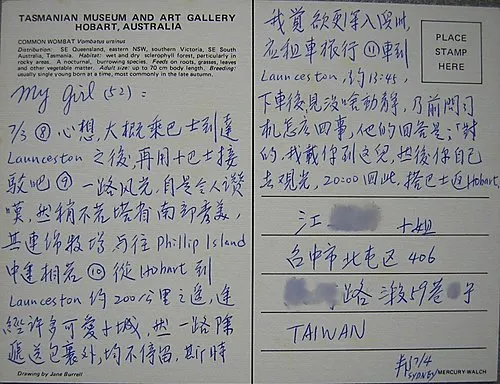 TASMANIAN MUSEUM AND ART GALLERY
HOBART, AUSTRALIA
COMMON WOMBAT Vombatus ursinus
Distribution: SE Queensland, eastern NSW, southern Victoria, SE South
Australia, Tasmania. Habitat: wet and dry sclerophyll forest, particularly in
rocky areas. A nocturnal, burrowing species. Feeds on roots, grasses, leaves
and other vegetable matter. Adult size: up to 70 cm body length. Breeding:
usually single young born at a time, most commonly in the late autumn.
My girl (52):
7/3 ⑧ 心想，大概乘巴士到達
Launceston 之後，再用小巴士接
駁吧 ⑨ 一路风光，自是令人讚
嘆，然稍不若塔省南部秀美，
其連綿牧場与往 Phillip Island
中途相若 ⑩ 從 Hobart 到
Launceston 約200公里之遙，途
經許多可愛小城，然一路除
遞送包裹外，均不停留，斯時
Drawing by Jane Burrell
我覺欲更深入澳洲，
应租車旅行 ⑪ 車到
Launceston，約13:45，
下車後見没啥动靜，乃前問司
机怎庅回事，他的回答是：「對
的，我載你到这兒，然後你自己
去观光，20:00回此，搭巴士返Hobart，
PLACE
STAMP
HERE
江 小姐
台中市北屯区 406
路 59巷
TAIWAN
17/4
SYDNEY
MERCURY-WALCH